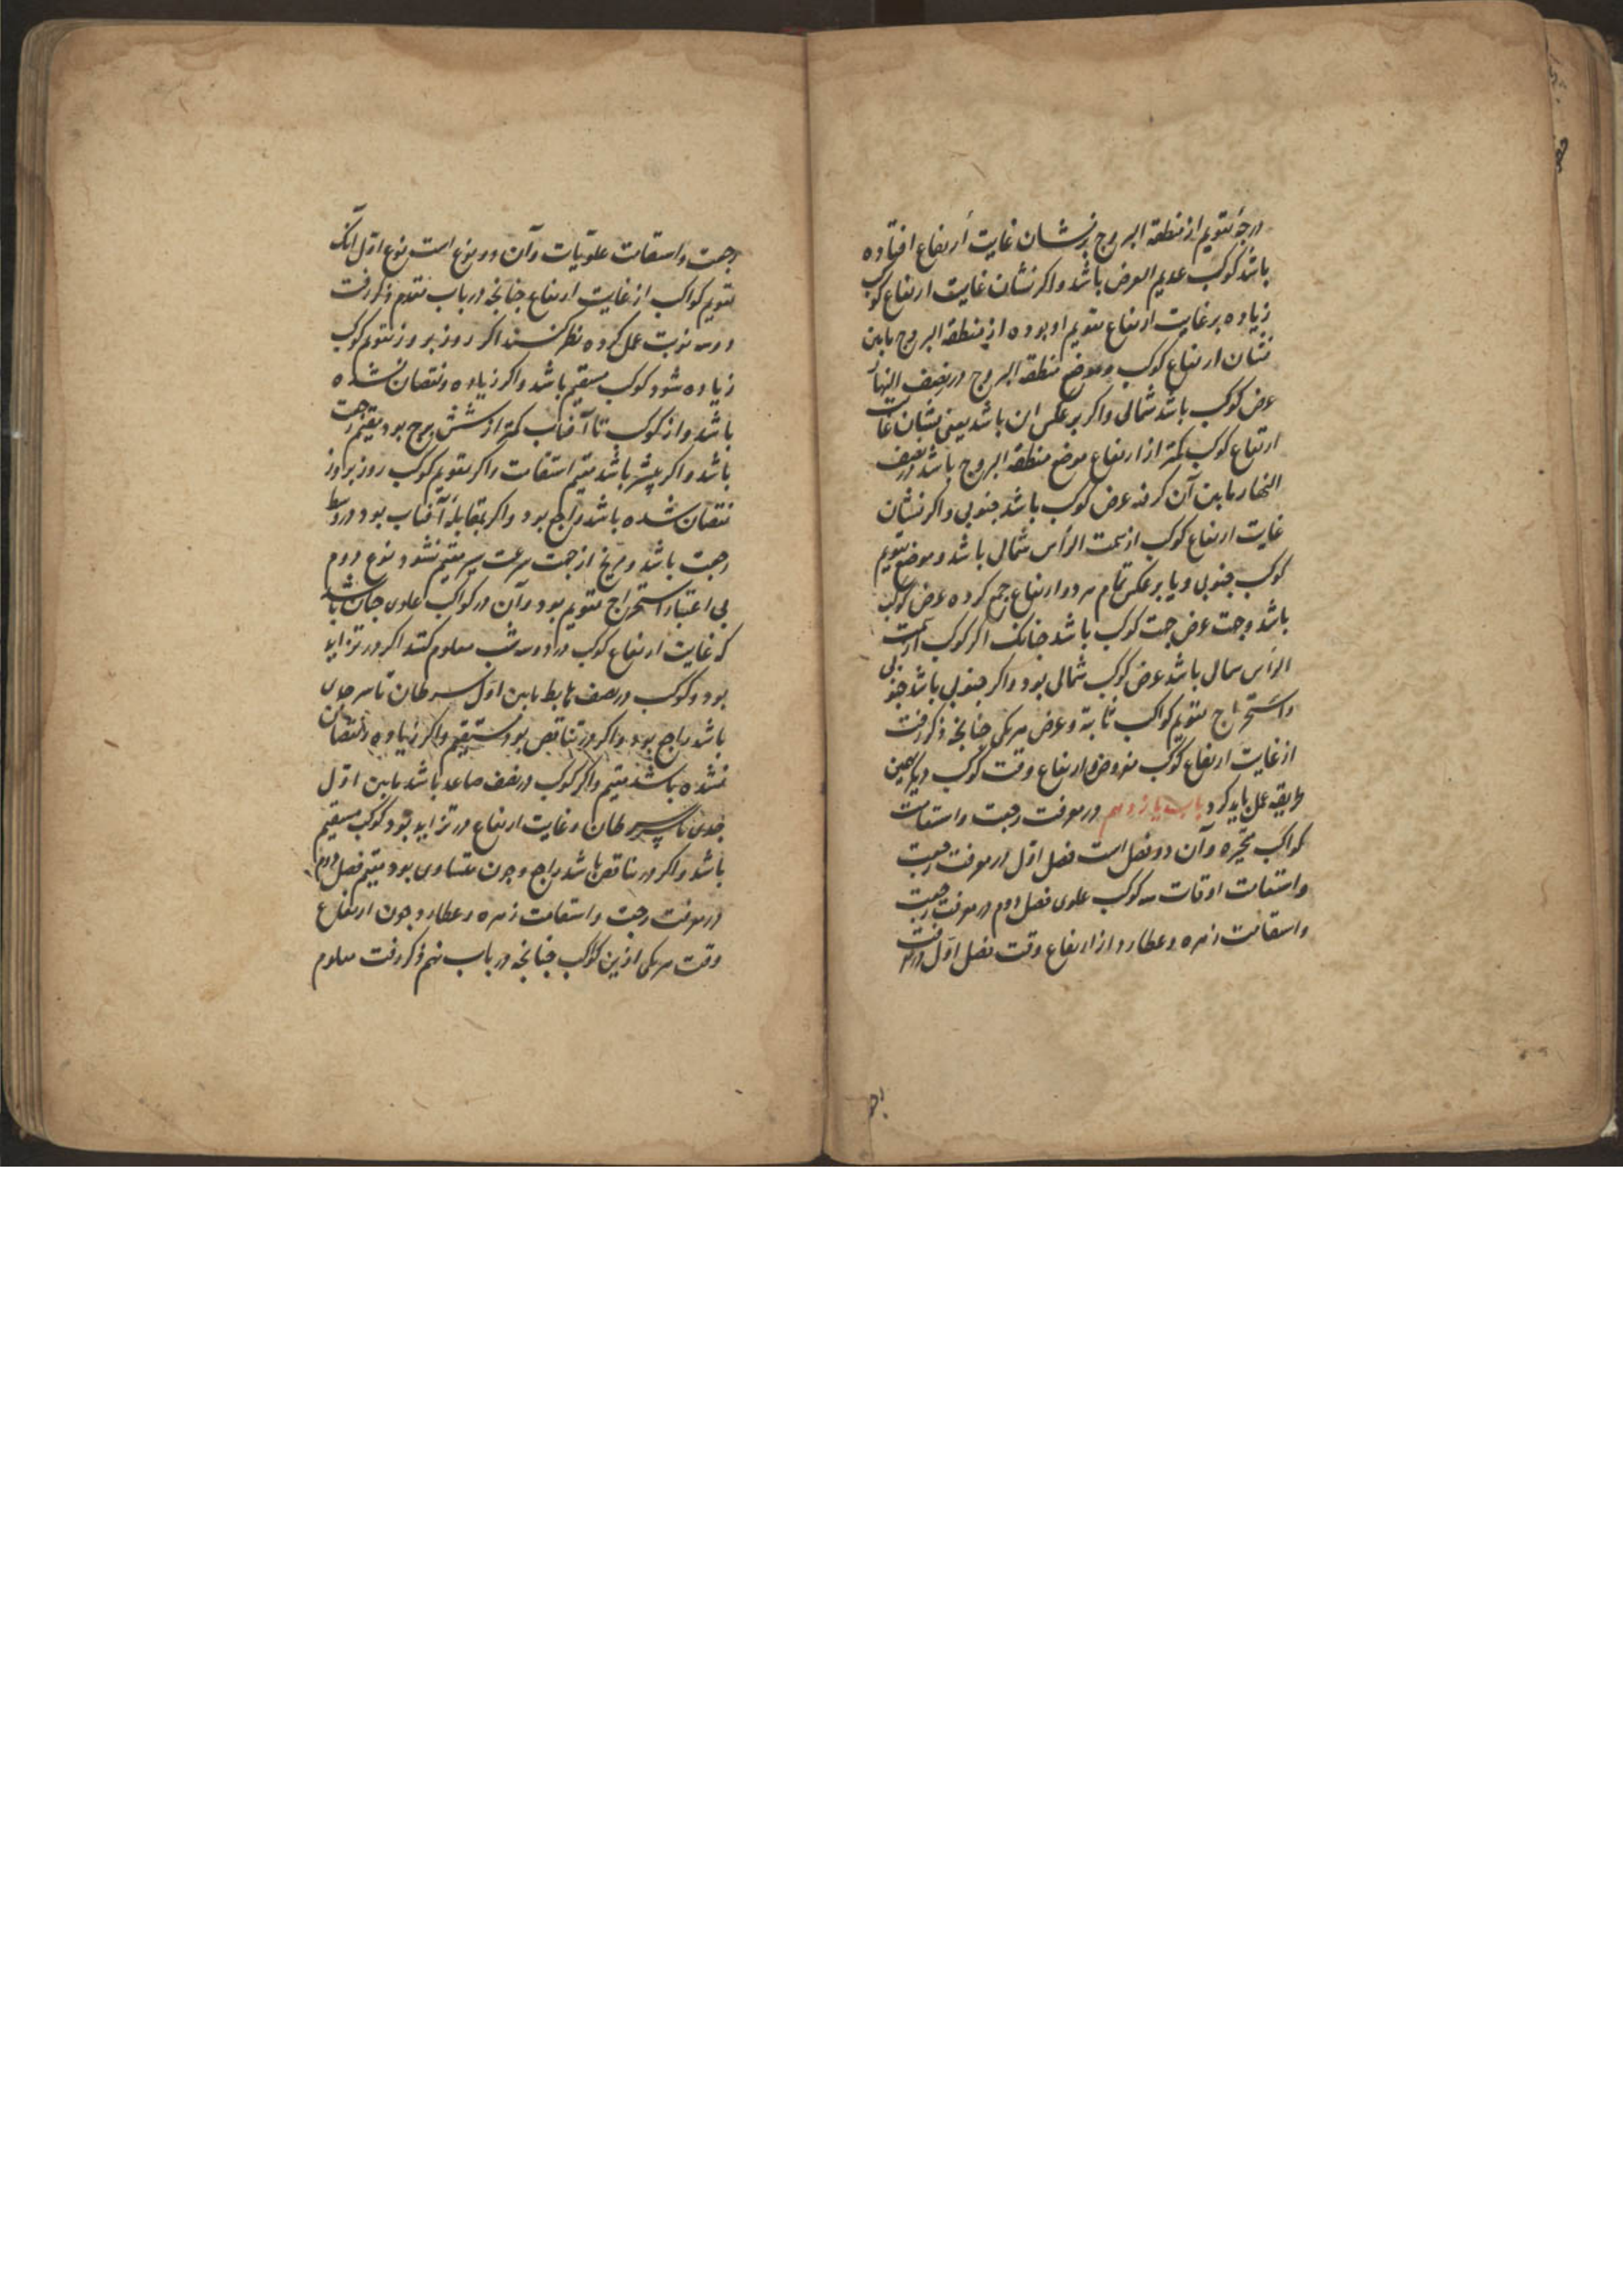 درجهٔ تقویم از منطقة البروج بر نشان غایت ارتفاع افتاده
باشد کوکب عدیم العرض باشد و اکر نشان غایت ارتفاع کوکب
زیاده بر غایت ارتفاع تقویم او بوده از منطقة البروج مابین
نشان ارتفاع کوکب و موضع منطقة البروج در نصف النهار
عرض کوکب باشد شمالی و اکر بر عکس این باشد یعنی نشان غایت
ارتفاع کوکب کمتر از ارتفاع موضع منطقة البروج باشد در نصف
النهار مابین آن کرفته عرض کوکب باشد جنوبی و اکر نشان
غایت ارتفاع کوکب از سمت الرأس شمالی باشد و موضع تقویم
کوکب جنوبی و یا بر عکس تمام هر دو ارتفاع جمع کرده عرض کوکب
باشد و جهت عرض جهت کوکب باشد جنانک اکر کوکب از سمت
الرأس شمال باشد عرض کوکب شمالی بود و اکر جنوبی باشد جنوبی
و استخراج تقویم کواکب ثابته و عرض هر یکی جنانجه ذکر رفت
از غایت ارتفاع کوکب مفروض و ارتفاع وقت کوکب دیکر همین
طریقه عمل باید کرد باب یازدهم در معرفت رجعت و استقامت
کواکب متحیره و آن دو فصل است فصل اوّل در معرفت رجعت
و استقامت اوقات سه کوکب علوی فصل دوم در معرفت رجعت
و استقامت زهره و عطارد از ارتفاع وقت فصل اوّل در معرفت
رجعت و استقامت علویات و آن دو نوع است نوع اوّل آنک
تقویم کواکب از غایت ارتفاع جنانجه در باب تقدم ذکر رفت
دو سه نوبت عمل کرده نظر کنند اکر روز بروز تقویم کوکب
زیاده شود کوکب مستقیم باشد و اکر زیاده و نقصان نشده
باشد و از کوکب تا آفتاب کمتر از شش برج بود مقیم رجعت
باشد و اکر بیشتر باشد مقیم استقامت و اکر تقویم کوکب روز بروز
نقصان شده باشد راجع بود و اکر بمقابلهٔ آفتاب بود در وسط
رجعت باشد و مریخ از جهت سرعت سیر مقیم نشود نوع دوم
بی اعتبار استخراج تقویم بود و آن در کواکب علوی جنان باشد
که غایت ارتفاع کوکب در دو سه شب معلوم کنند اکر در تزاید
بود و کوکب در نصف هابط مابین اوّل سرطان تا سر جدی
باشد راجع بود و اکر در تناقص بود مستقیم و اکر زیاده و نقصان
نشده باشد مقیم و اکر کوکب در نصف صاعد باشد مابین اوّل
جدی تا سر سرطان و غایت ارتفاع در تزاید بود کوکب مستقیم
باشد و اکر در تناقص باشد راجع و جون متساوی بود مقیم فصل دوم
در معرفت رجعت و استقامت زهره و عطارد جون ارتفاع
وقت هر یکی ازین کواکب جنانجه در باب نهم ذکر رفت معلوم